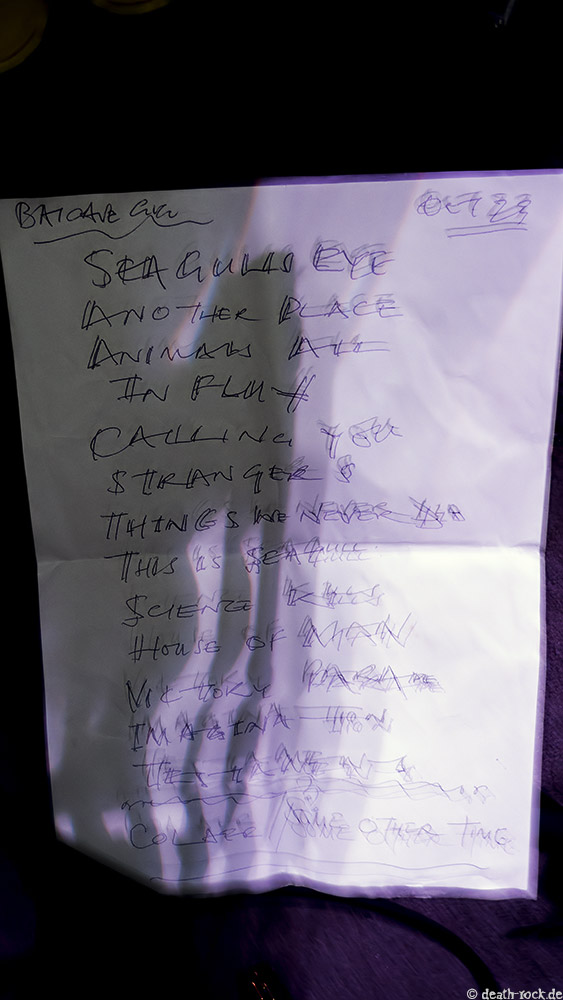 OCT 22
SEAGULLS EYE
ANOTHER PLACE
ANIMALS ALL
IN FLUX
CALLING YOU
STRANGERS
THINGS WE NEVER
THIS IS SEAGULL
SCIENCE KILLS
HOUSE OF MAIN
VICTORY PARADE
IMAGINATION
TESTAMENTS
COLAGE // SOME OTHER TIME
© death-rock.de